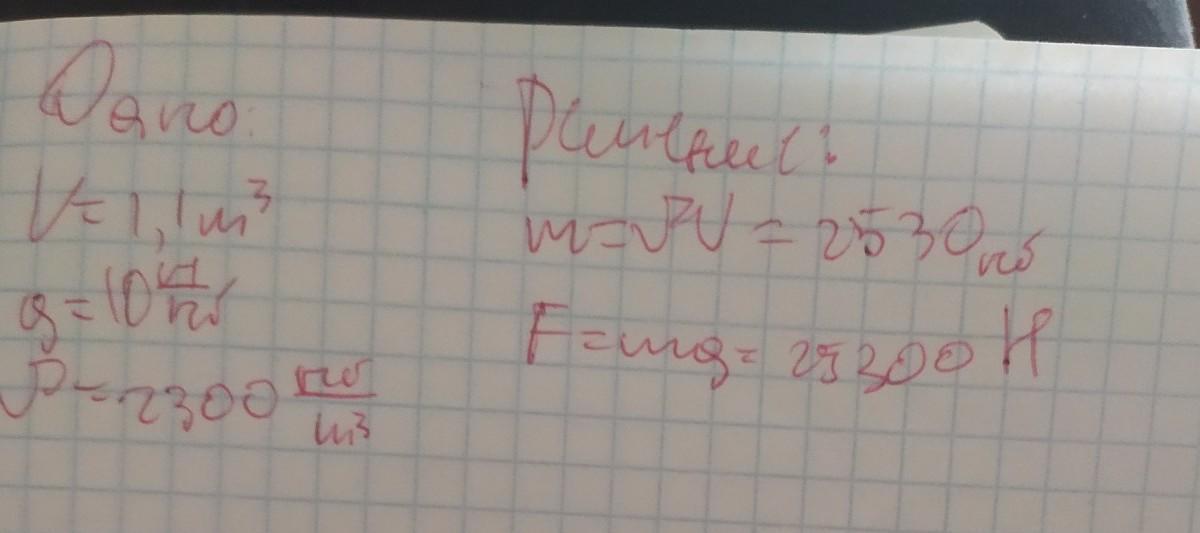 Дано:
V=1,1м³
g=10 Н/кг
ρ=2300 кг/м³
Решение:
m=ρV=2530кг
F=mg=25300 Н